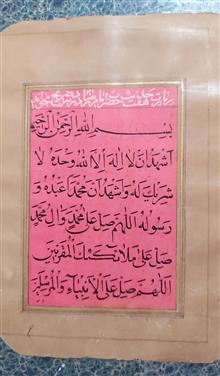 زیارت حضرت امام رضا
بسم الله الرحمن الرحیم
اشهد ان لا اله الا الله وحده لا
شریک له و اشهد ان محمدا عبده و
رسوله اللهم صل علی محمد و ال محمد
صل علی ملائکتک المقربین
اللهم صل علی الانبیاء والمرسلین